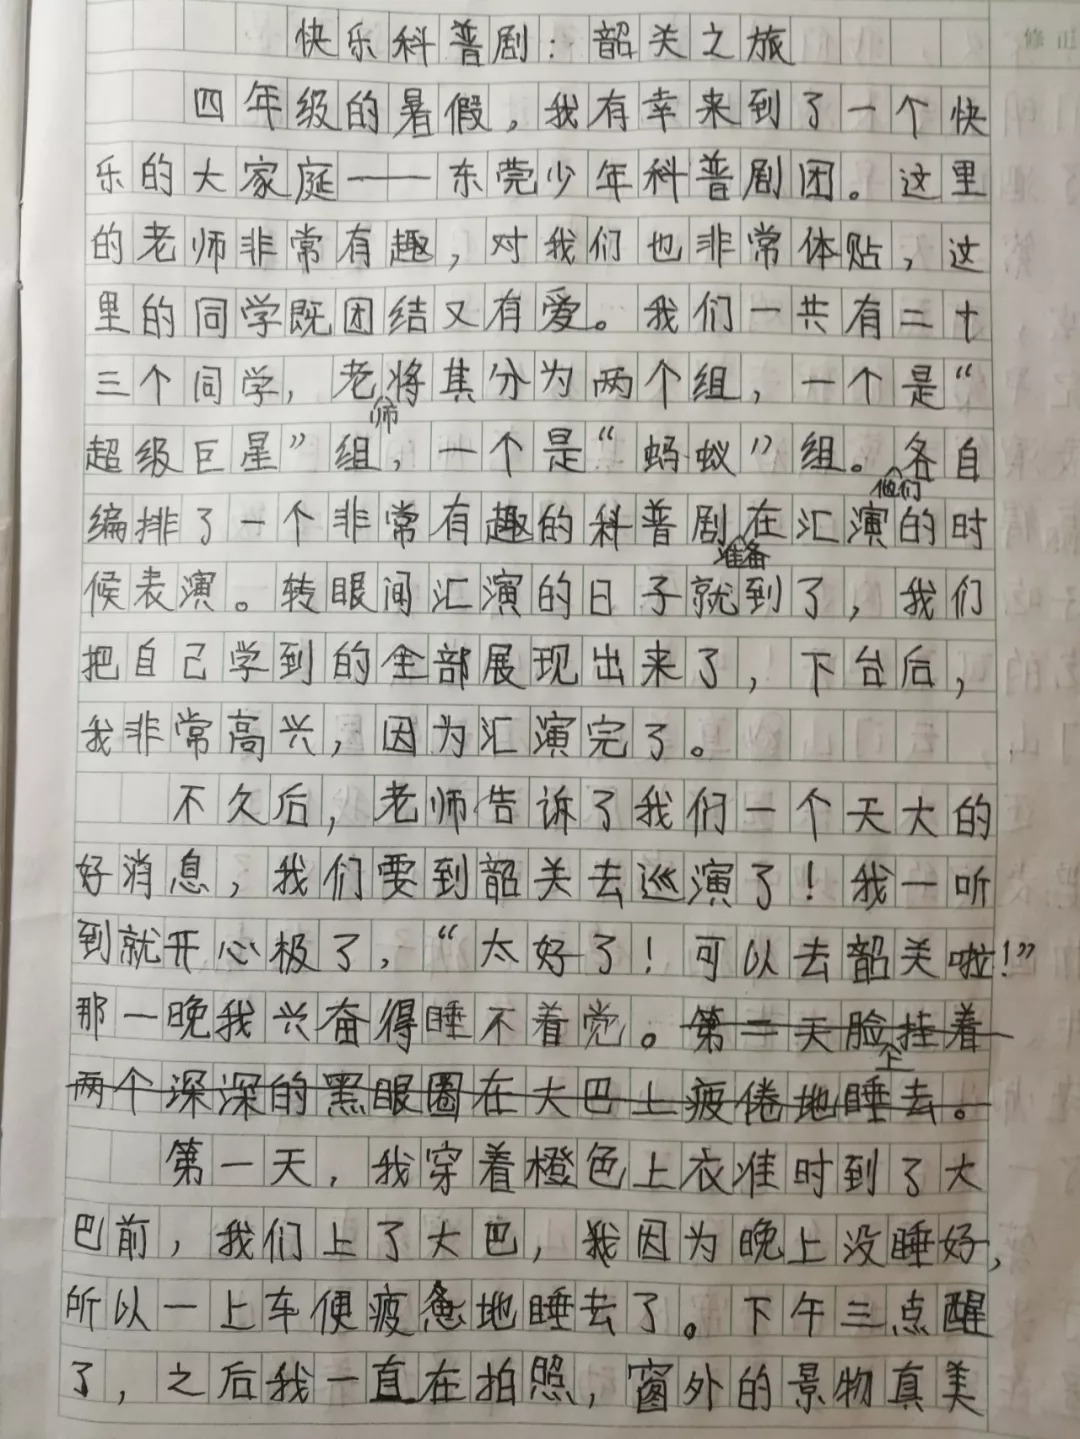 快乐科普剧：韶关之旅
四年级的暑假，我有幸来到了一个快
乐的大家庭——东莞少年科普剧团。这里
的老师非常有趣，对我们也非常体贴，这
里的同学既团结又有爱。我们一共有二十
三个同学，老师将其分为两个组，一个是“
超级巨星”组，一个是“蚂蚁”组。他们各自
编排了一个非常有趣的科普剧准备在汇演的时
候表演。转眼间汇演的日子就到了，我们
把自己学到的全部展现出来了，下台后，
我非常高兴，因为汇演完了。
不久后，老师告诉了我们一个天大的
好消息，我们要到韶关去巡演了！我一听
到就开心极了，“太好了！可以去韶关啦！”
那一晚我兴奋得睡不着觉。第二天脸上挂着
两个深深的黑眼圈在大巴上疲倦地睡去。
第一天，我穿着橙色上衣准时到了大
巴前，我们上了大巴，我因为晚上没睡好，
所以一上车便疲惫地睡去了。下午三点醒
了，之后我一直在拍照，窗外的景物真美